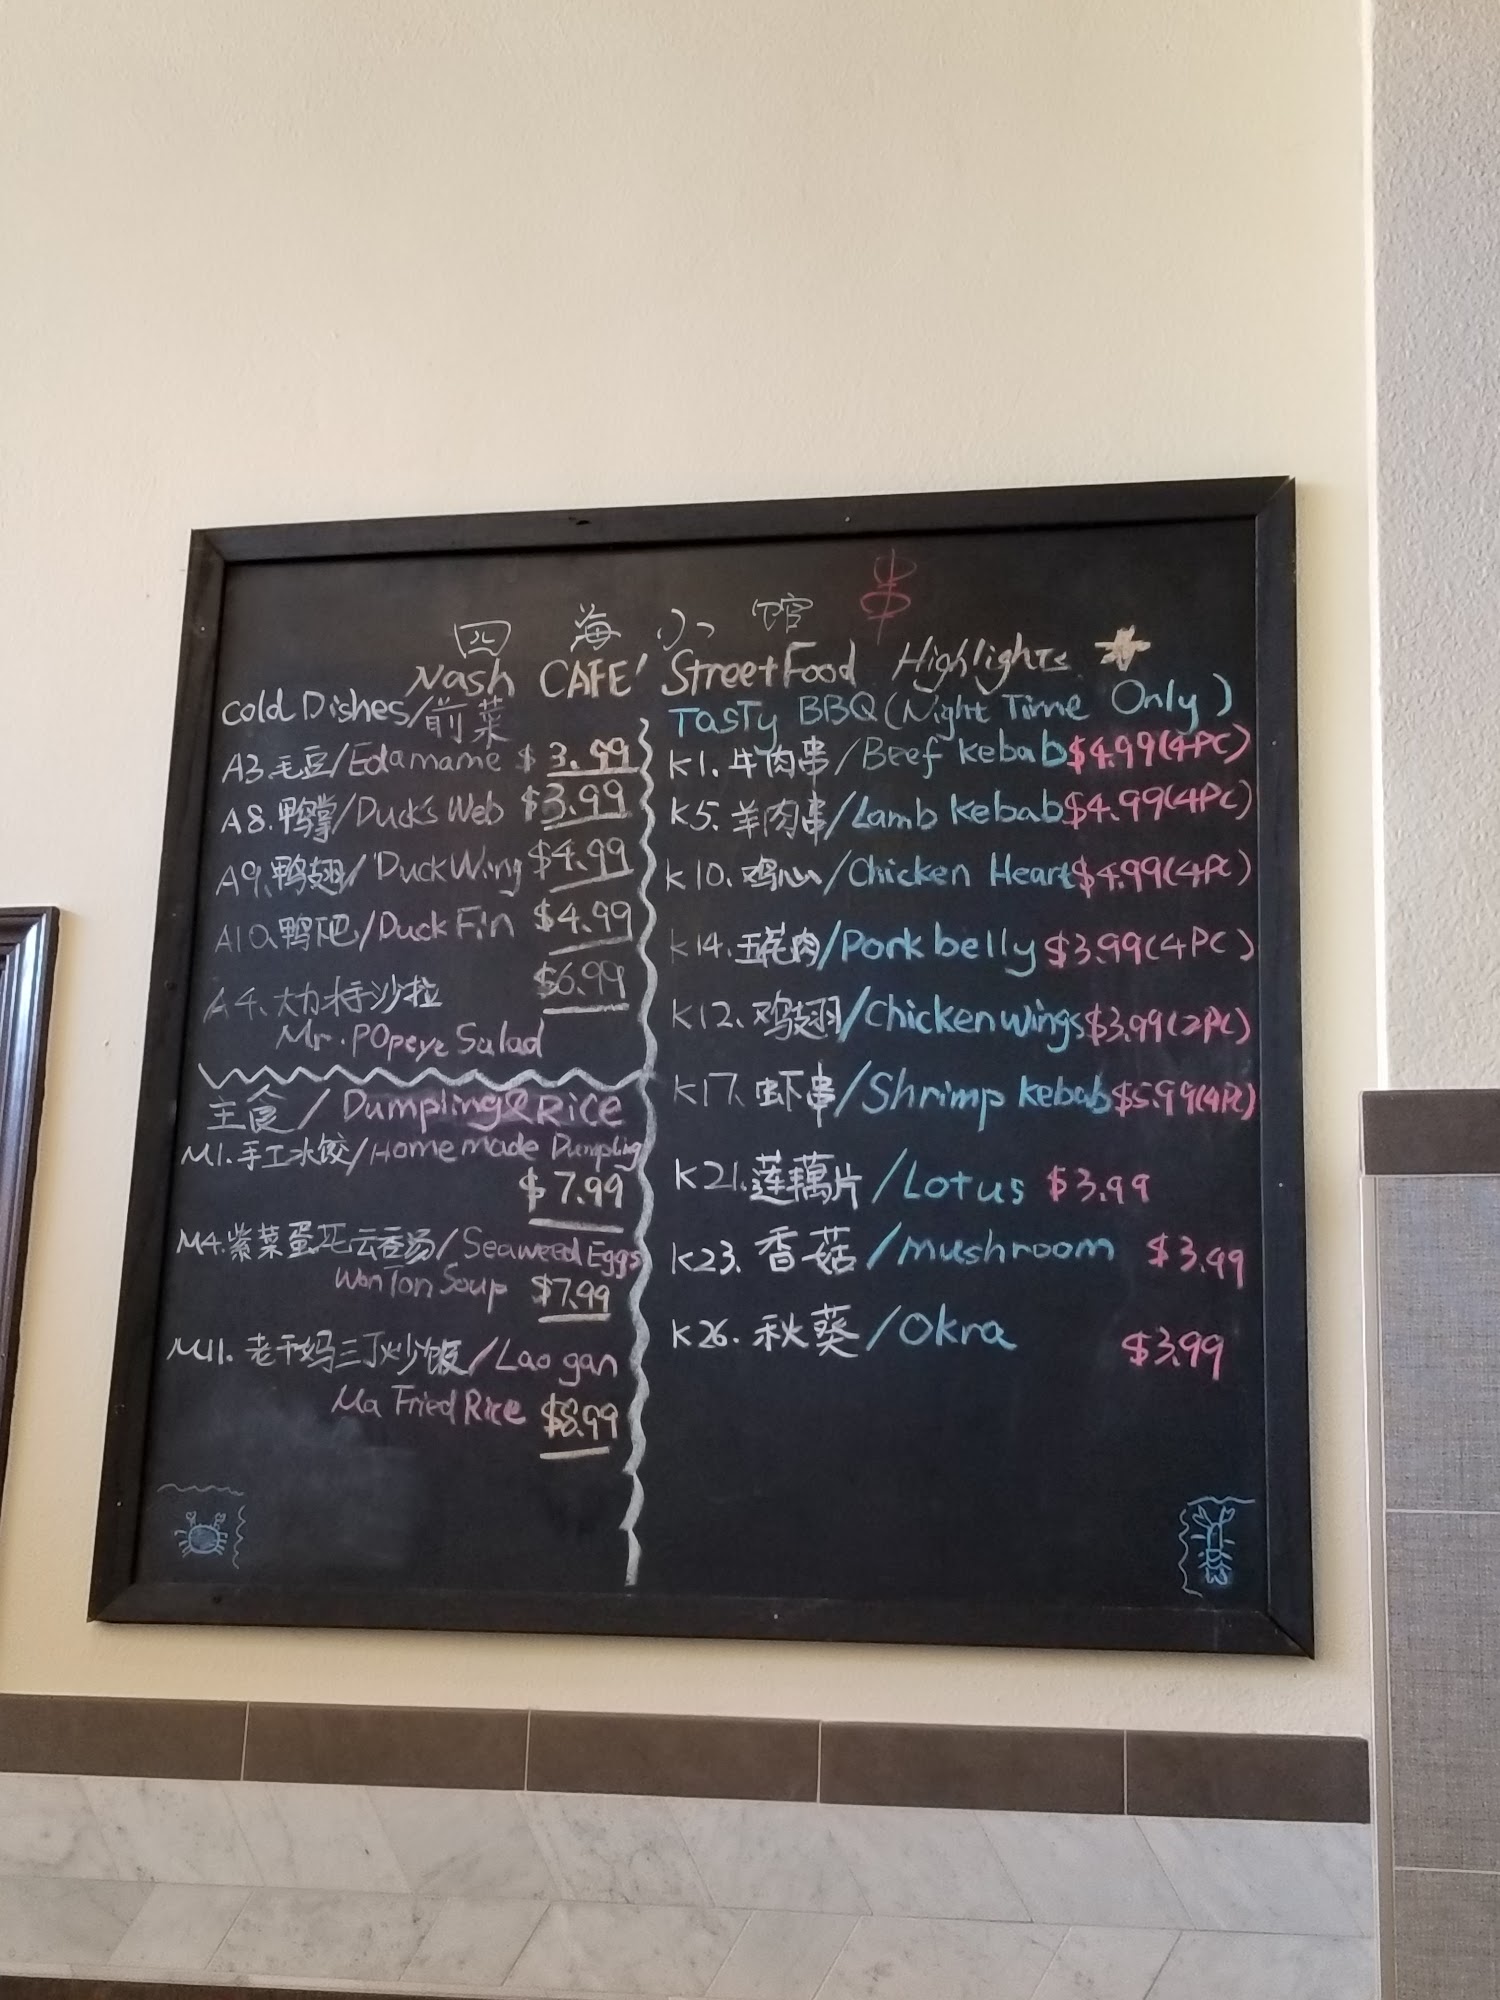 串
四海小馆
Nash CAFE' Street Food Highlights
Cold Dishes/前菜
A3.毛豆/Edamame $3.99
A8.鸭掌/Duck's Web $3.99
A9.鸭翅/Duck Wing $4.99
A10.鸭下巴/Duck Fin $4.99
A4.大力水手沙拉 $6.99
Mr.Popeye Salad
主食/Dumpling&Rice
M1.手工水饺/Homemade Dumpling
$7.99
M4.紫菜蛋花云吞汤/Seaweed Eggs
WonTon Soup $7.99
M11.老干妈三丁炒饭/Lao gan
Ma Fried Rice $8.99
Tasty BBQ(Night Time Only)
K1.牛肉串/Beef Kebab $4.99(4PC)
K5.羊肉串/Lamb Kebab $4.99(4PC)
K10.鸡心/Chicken Heart $4.99(4PC)
K14.五花肉/Pork belly $3.99(4PC)
K12.鸡翅/Chicken wings $3.99(2PC)
K17.虾串/Shrimp Kebab $5.99(4PC)
K21.莲藕片/Lotus $3.99
K23.香菇/mushroom $3.99
K26.秋葵/Okra $3.99